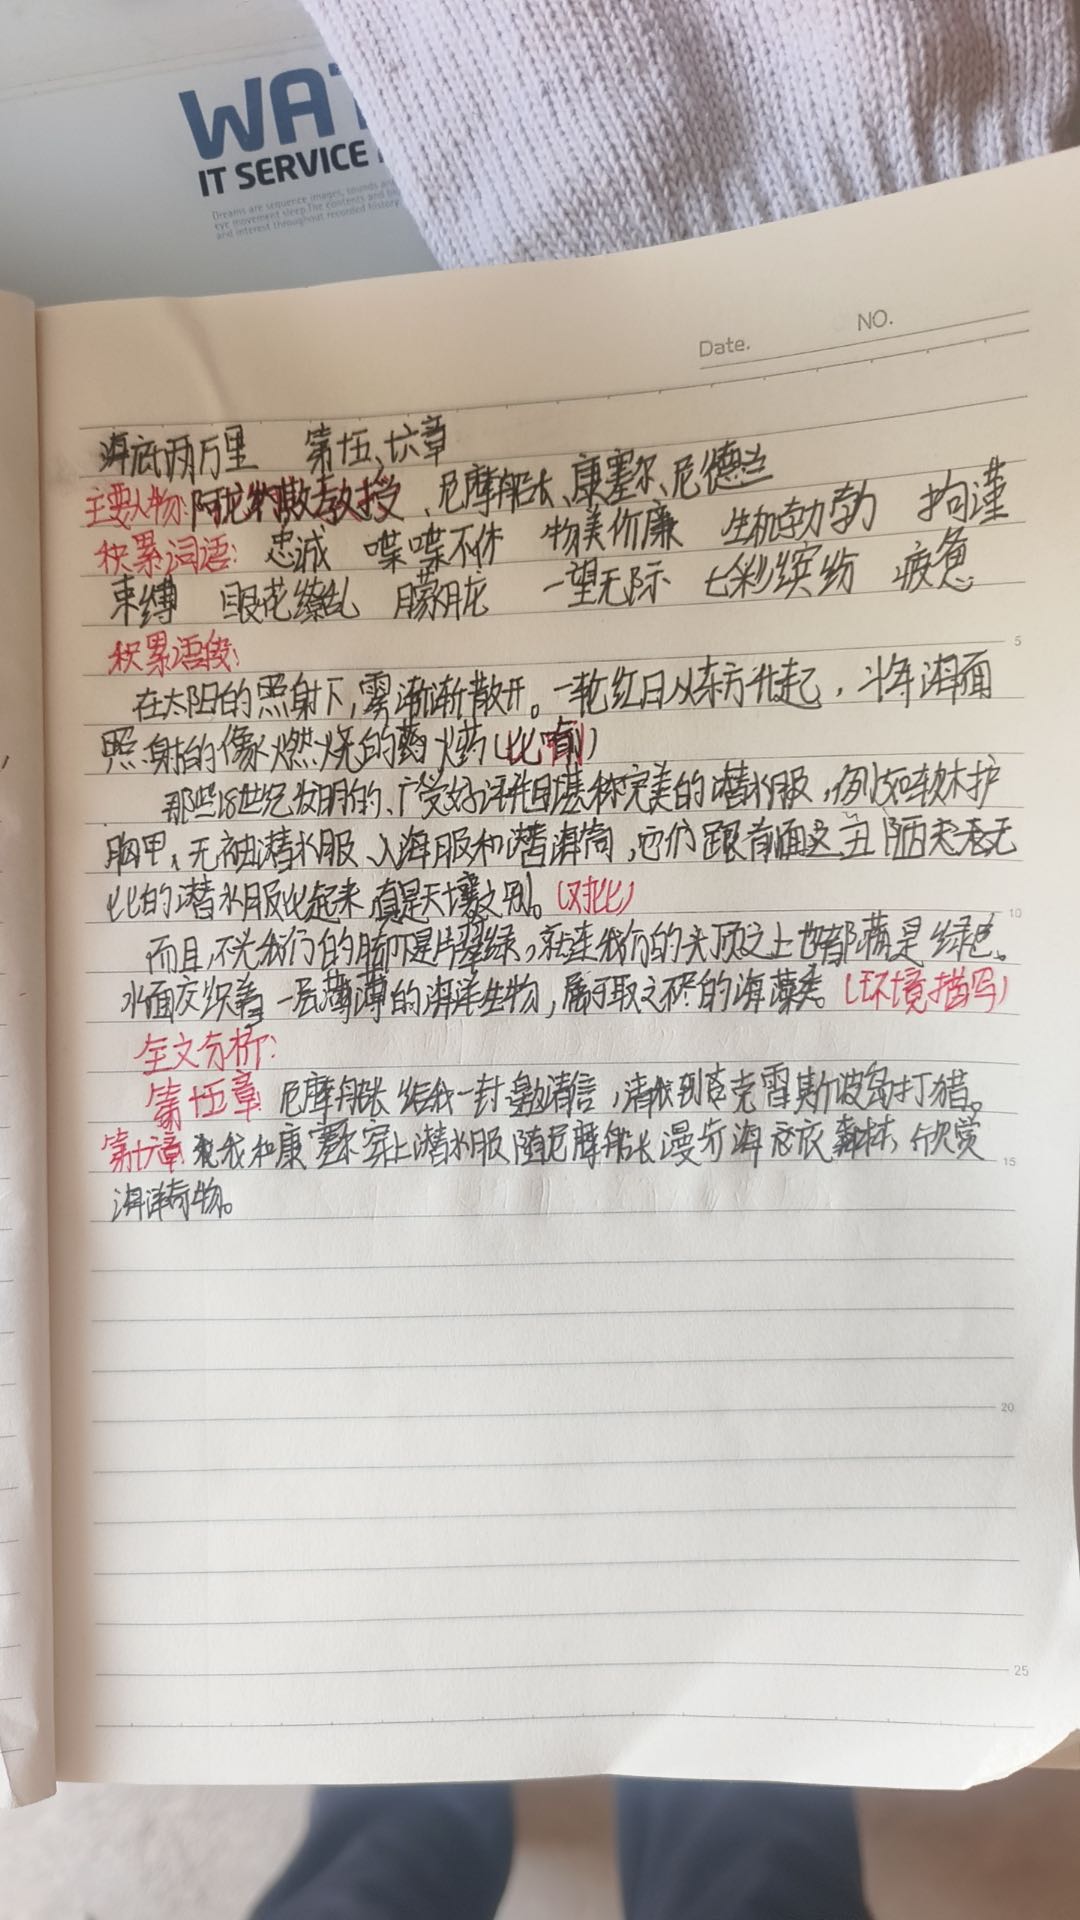 WAT
IT SERVICE
Dreams are sequence images, sounds and
eye movement sleep. The contents and
and interest throughout recorded history
NO.
Date.
海底两万里 第十五、十六章
主要人物:阿龙纳斯教授、尼摩船长、康塞尔、尼德兰
积累词语: 忠诚 喋喋不休 物美价廉 生机勃勃 拘谨
束缚 眼花缭乱 朦胧 一望无际 七彩缤纷 疲惫
积累语段:
在太阳的照射下,雾渐渐散开。一轮红日从东方升起,将海面
照射的像燃烧的火药(比喻)
那些18世纪发明的、广受好评并且堪称完美的潜水服,例如软木护
胸甲、无袖潜水服、入海服和潜海筒,它们跟前面这丑陋无
比的潜水服比起来,真是天壤之别。(对比)
而且,不光我们的脚下是片翠绿,就连我们的头顶之上也都满是绿色。
水面交织着一层薄薄的海洋生物,属于取之不尽的海藻类。(环境描写)
全文分析:
第十五章 尼摩船长给我一封邀请信,请我到克雷斯波岛打猎。
第十六章 我和康塞尔穿上潜水服随尼摩船长漫步海底森林,欣赏
海洋奇物。
5
10
15
20
25